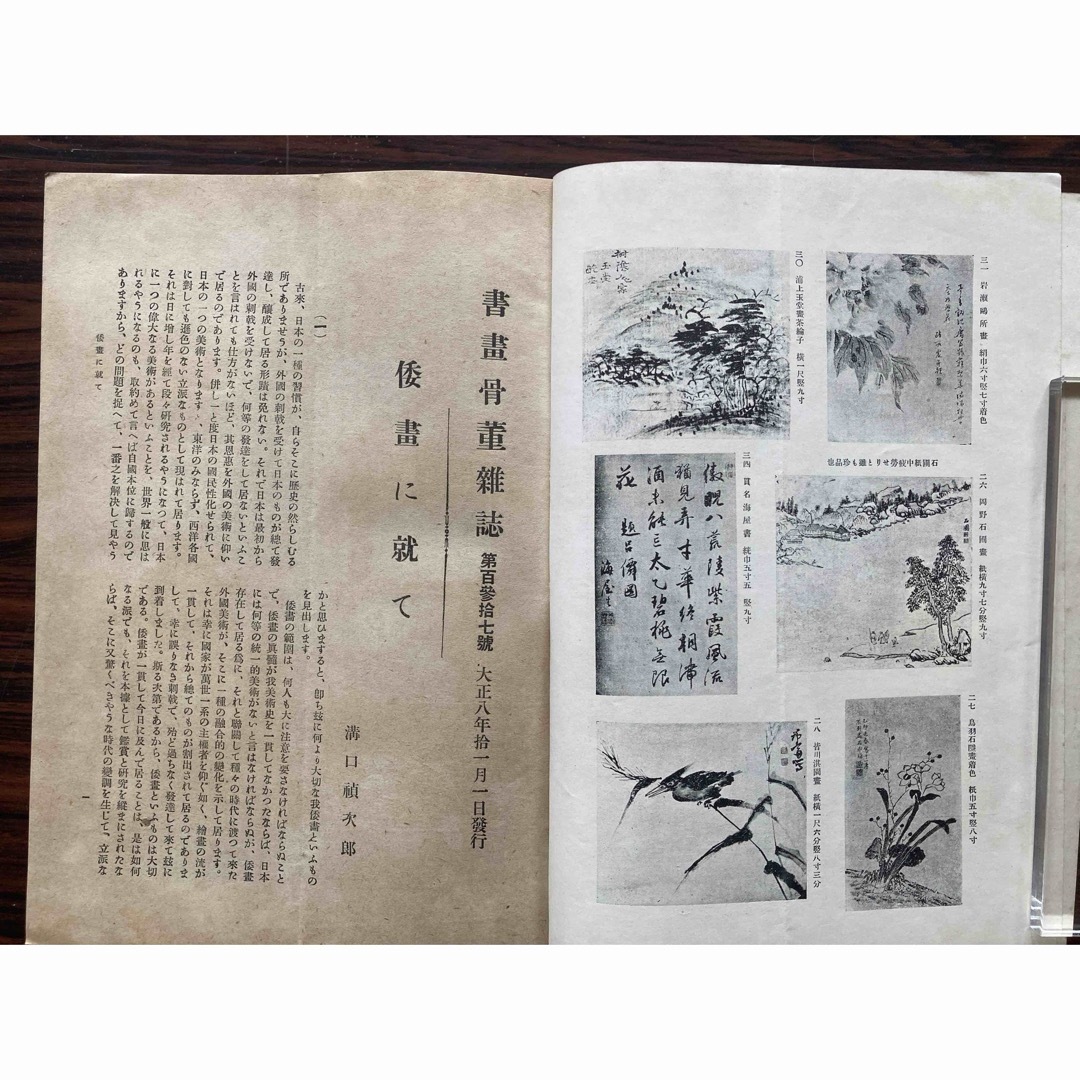 三一 岩瀬鷗所畫・絹巾六寸竪七寸着色
三〇 浦上玉堂畫茶綸子 横一尺竪九寸
樹陰人家
玉堂
石圃紙中疲勞せりと雖も珍品也
二六 岡野石圃畫 紙横九寸七分竪九寸
三四 貫名海屋書 紙巾五寸五 竪九寸
八荒陵紫霞風流
猶見弄才華終朝滯
酒未能 太乙碧桃無限
花 題呂僊圖
海屋生
二七 鳥羽石隱畫着色 紙巾五寸竪八寸
二八 皆川淇園畫 紙横一尺六分竪八寸三分
書畫骨董雜誌 第百參拾七號 大正八年拾一月一日發行
倭畫に就て
溝口禎次郎
(一)
古來、日本の一種の習慣が、自らそこに歷史の然らしむる
所でありませうが、外國の刺戟を受けて日本のものが總て發
達し、釀成して居る形蹟は免れない。それで日本は最初から
外國の刺戟を受けないで、何等の發達をして居ないといふこ
とを言はれても仕方がないほど、其恩惠を外國の美術に仰い
で居るのであります。併し一と度日本の國民性化せられて、
日本の一つの美術となります、東洋のみならず、西洋各國
に對しても遜色のない立派なものとして現はれて居ります。
それは日に增し年を經て段々硏究されるやうになつて、日本
に一つの偉大なる美術があるといふことを、世界一般に思は
れるやうになるのも、取約めて言へば自國本位に歸するので
ありますから、どの問題を捉へて、一番之を解決して見やう
かと思ひますると、卽ち玆に何より大切な我倭畫といふもの
を見出します。
倭畫の範圍は、何人も大に注意を要さなければならぬこと
で、倭畫の眞髓が我美術史を一貫してなかつたならば、日本
には何等の統一的美術がないと言はなければならぬが、倭畫
存在して居る爲に、それと聯關して種々の時代に渡つて來た
外國美術が、そこに一種の融合的の變化を示して居ります。
それは幸に國家が萬世一系の主權者を仰ぐ如く、繪畫の流が
一貫して、それから總てのものが割出されて居るのでありま
して、幸に誤りなき刺戟で、殆ど過ちなく發達して來て玆に
到着しました。斯る次第であるから、倭畫といふものは大切
である。倭畫が一貫して今日に及んで居ることは、是は如何
なる派でも、それを本據として鑑賞と硏究を縱まにされたな
らば、そこに又驚くべきやうな時代の變調を生じて、立派な
倭畫に就て
一